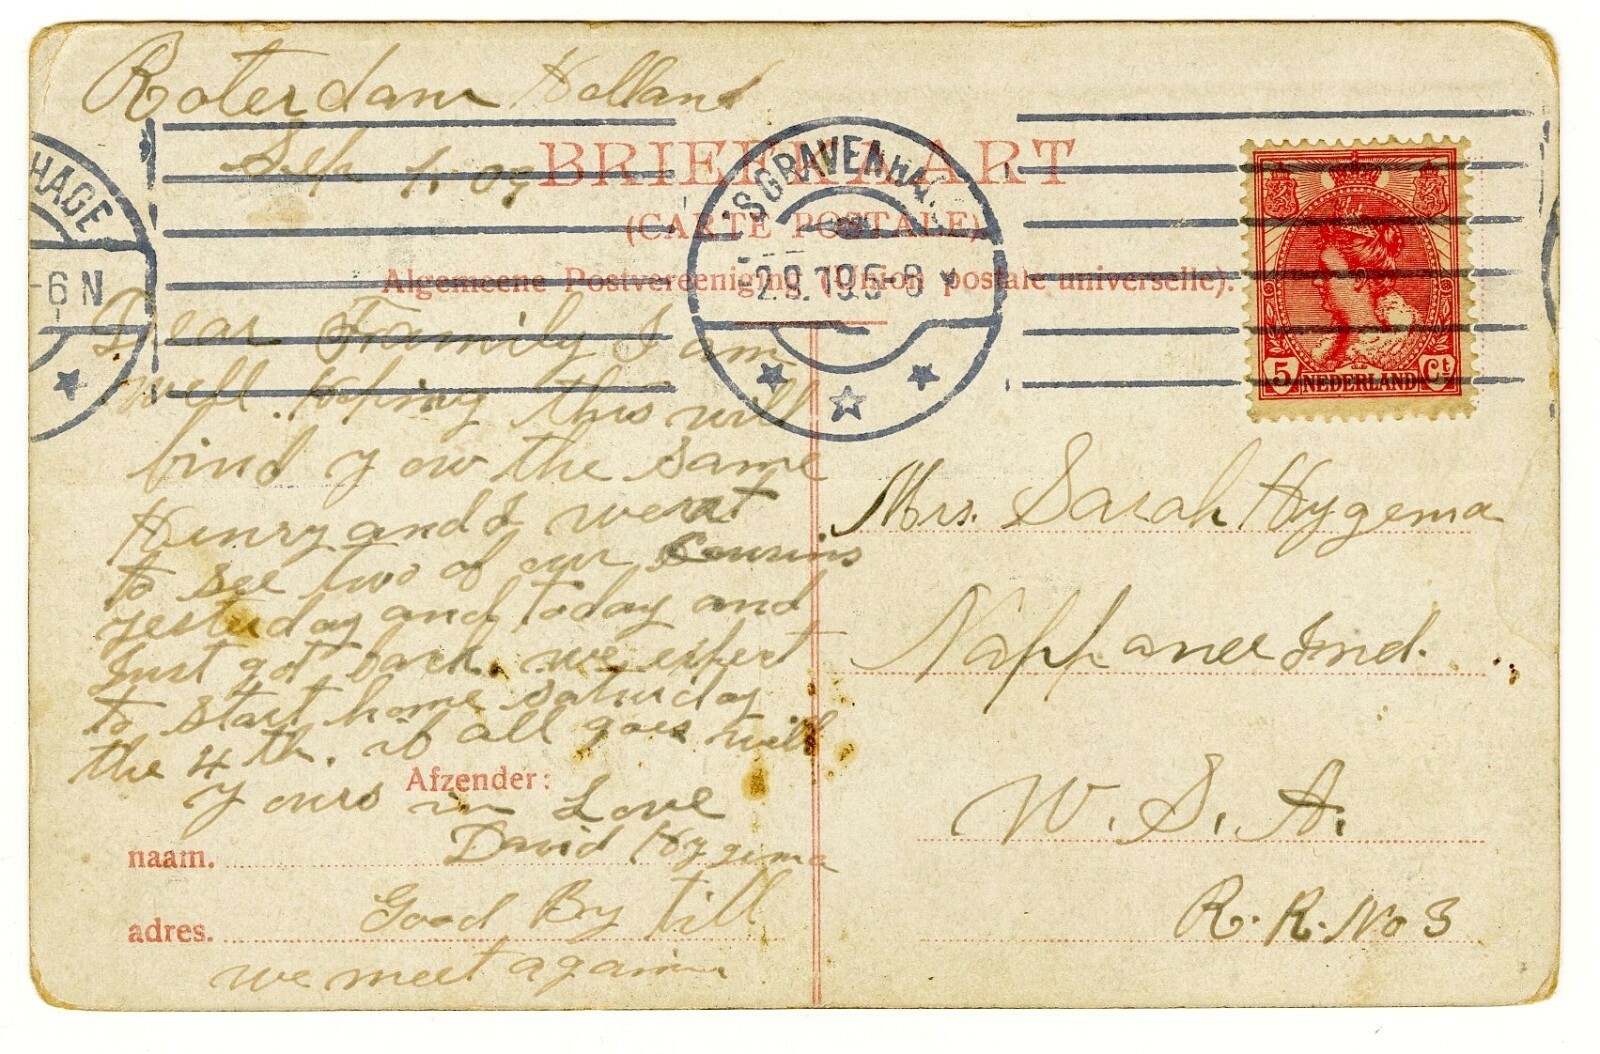 Roterdam Holland
Sep 1. 09
BRIEFKAART
(CARTE POSTALE)
Algemeene Postvereeniging (Union postale universelle).
HAGE
-6 N
'SGRAVENHAG
2.9. 5-6
5 NEDERLAND Ct
Dear Family I am
well. hoping this will
find you the same
Henry and I went
to see two of our Cousins
yesterday and today and
Just got back. we expect
to start home saturday
the 4 th. if all goes well
Afzender:
yours in Love
naam. David Hygema
adres. Good By till
we meet again
Mrs. Sarah Hygema
Nappanee Ind.
U. S. A.
R. R. No 3